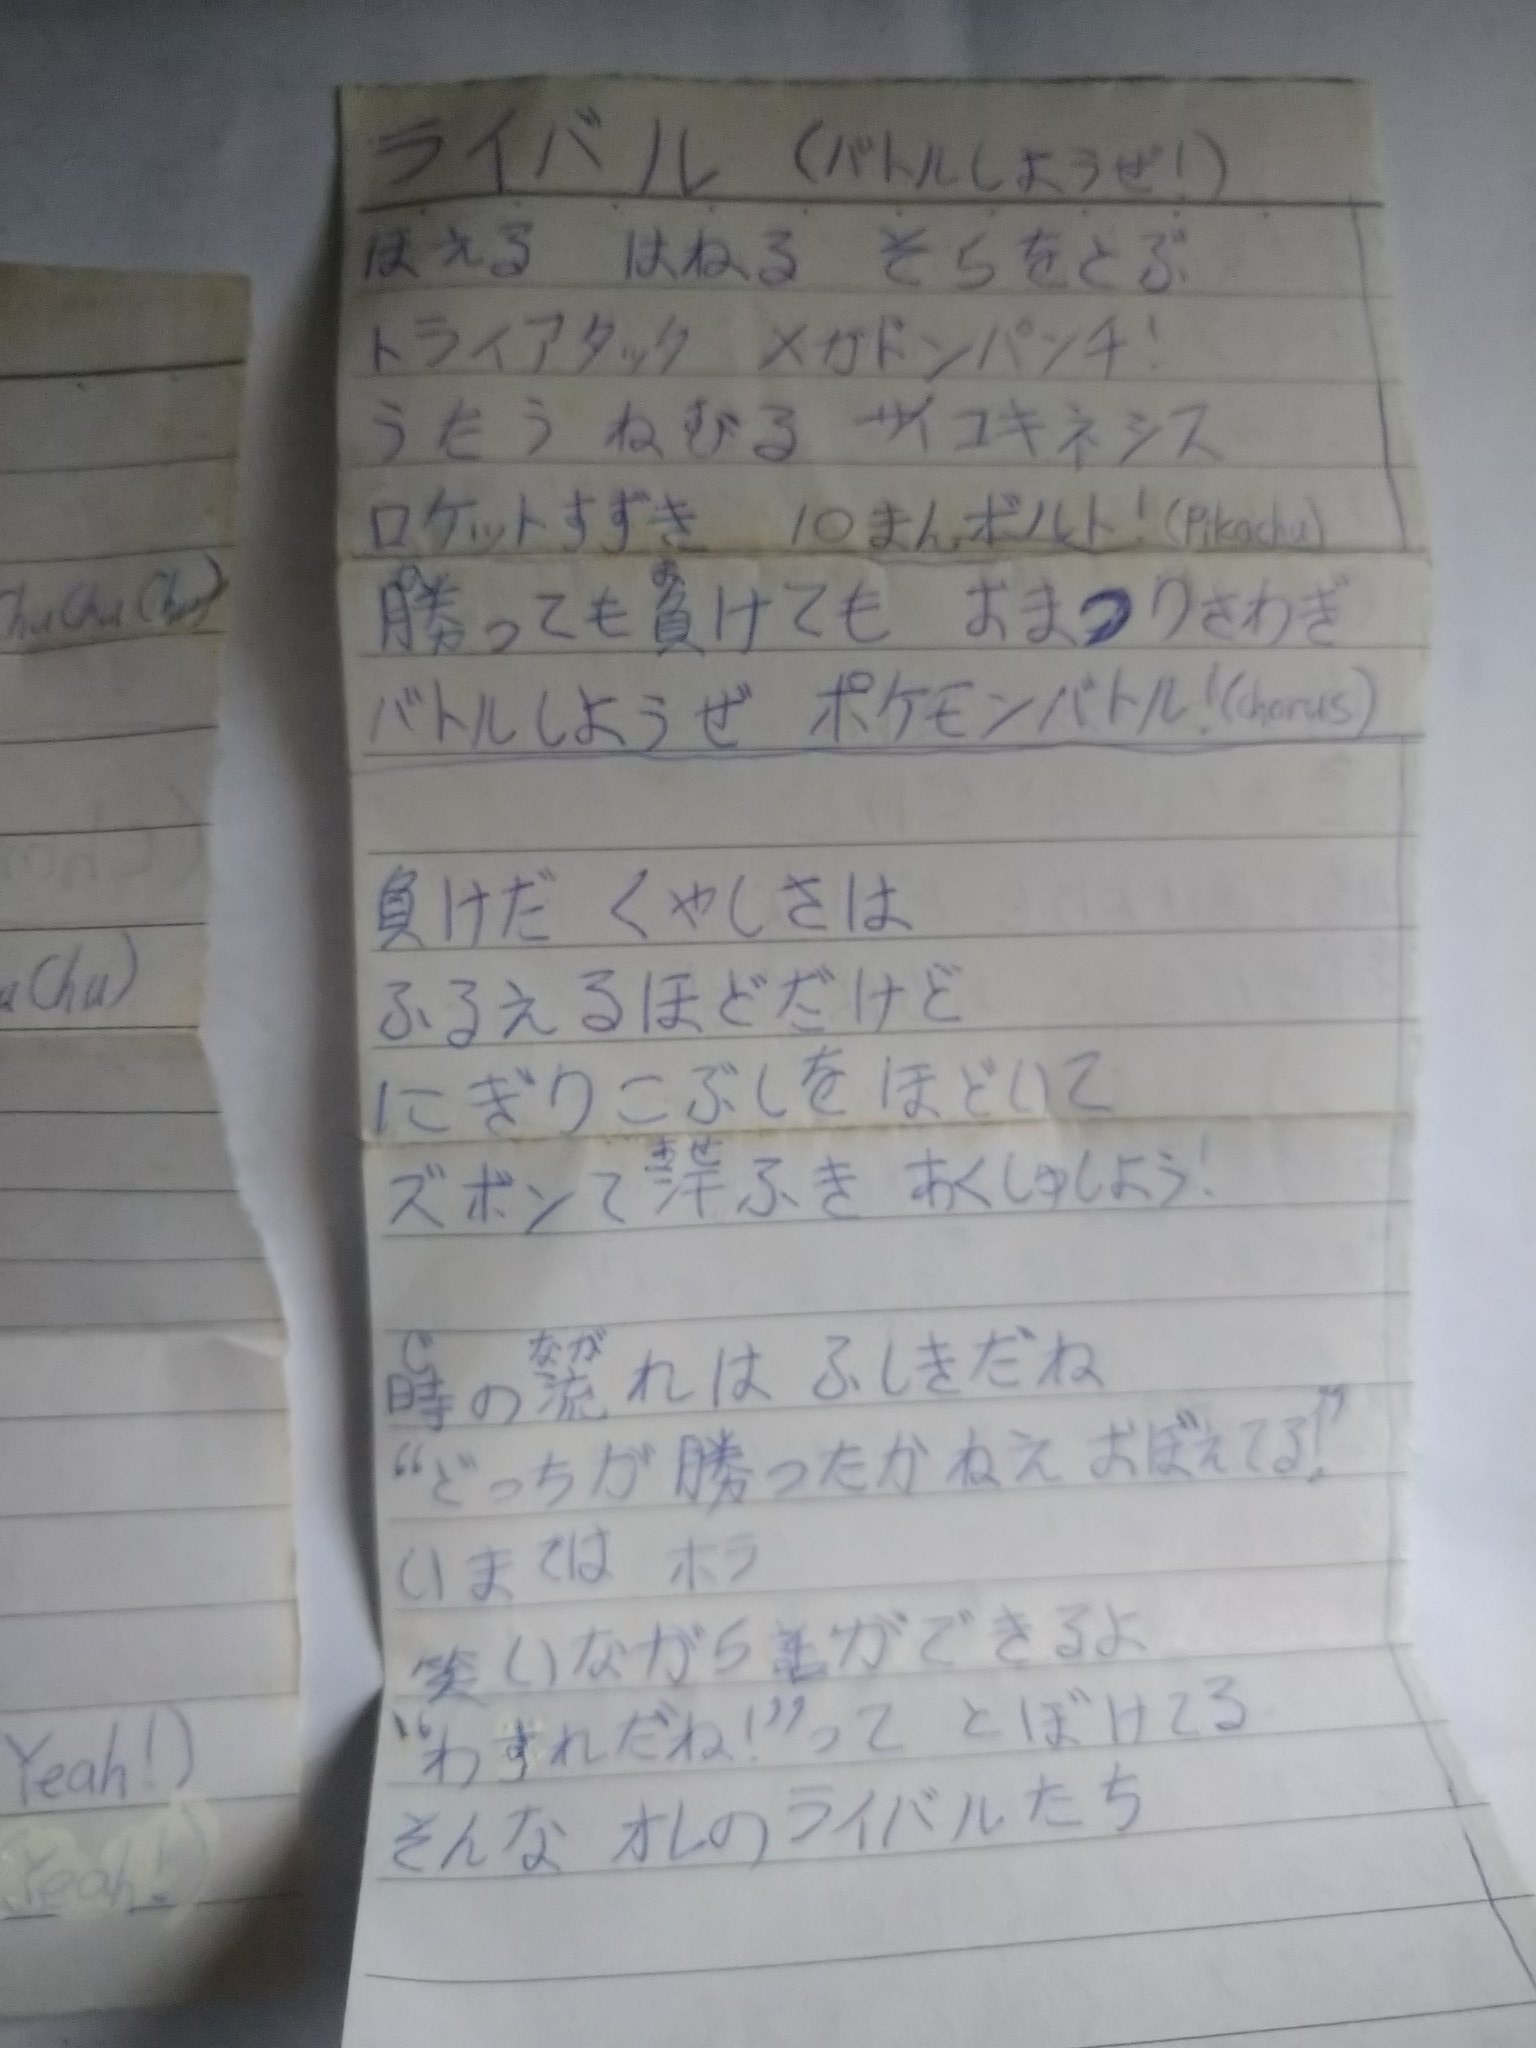 ライバル (バトルしようぜ!)
ほえる はねる そらをとぶ
トライアタック メガドンパンチ!
うたう ねむる サイコキネシス
ロケットずずき 10まんボルト! (Pikachu)
勝っても負けても おまつりさわぎ
バトルしようぜ ポケモンバトル! (chorus)
負けだ くやしさは
ふるえるほどだけど
にぎりこぶしを ほどいて
ズボンて汗ふき あくしゅしよう!
あせ
じ なが
時の流れは ふしきだね
“どっちが勝ったかねえ おぼえてる!”
いまでは ホラ
笑いながら話ができるよ
“わすれだね!”って とぼけてる
そんな オレのライバルたち
Chu Chu Chu)
Chu)
Yeah!)
Yeah!)